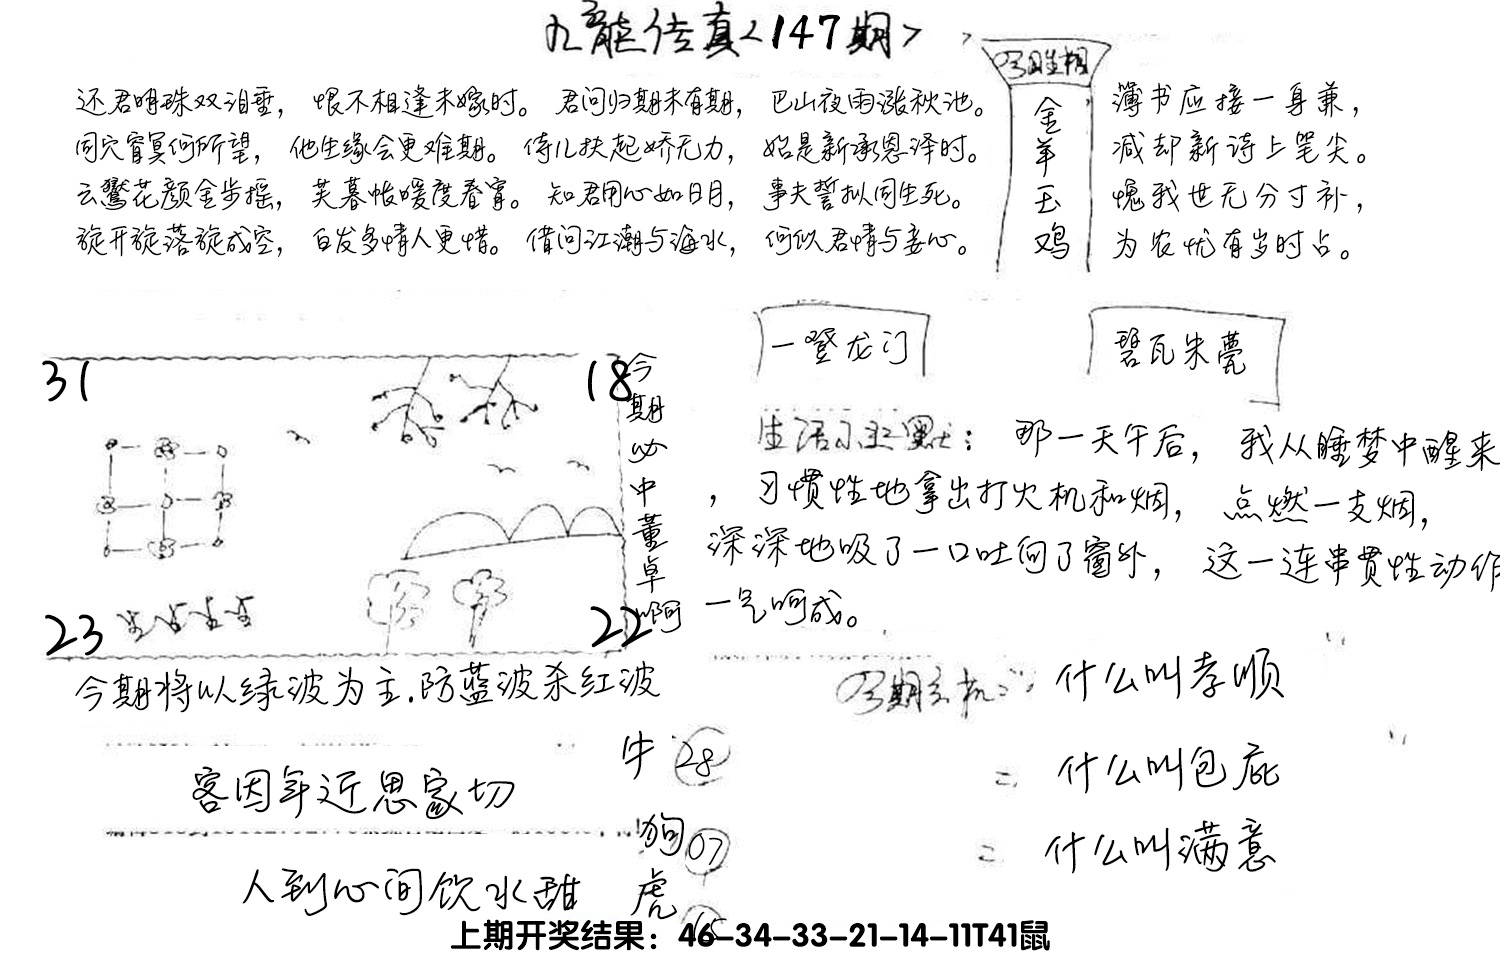 九龍传真<147期>
今期生相
金羊玉鸡
还君明珠双泪垂，恨不相逢未嫁时。君问归期未有期，巴山夜雨涨秋池。
同穴窅冥何所望，他生缘会更难期。侍儿扶起娇无力，始是新承恩泽时。
云鬓花颜金步摇，芙蓉帐暖度春宵。知君用心如日月，事夫誓拟同生死。
旋开旋落旋成空，白发多情人更惜。借问江潮与海水，何似君情与妾心。
簿书应接一身兼，
减却新诗上笔尖。
愧我世无分寸补，
为农忧有岁时占。
一登龙门
碧瓦朱甍
31
18
23
22
今期必中董卓啊
生活小幽默：那一天午后，我从睡梦中醒来
，习惯性地拿出打火机和烟，点燃一支烟，
深深地吸了一口吐向了窗外，这一连串贯性动作
一气呵成。
今期将以绿波为主.防蓝波杀红波
今期玄机：什么叫孝顺
=什么叫包庇
=什么叫满意
客因年近思家切
人到心间饮水甜
牛 28
狗 07
虎
上期开奖结果：46-34-33-21-14-11T41鼠